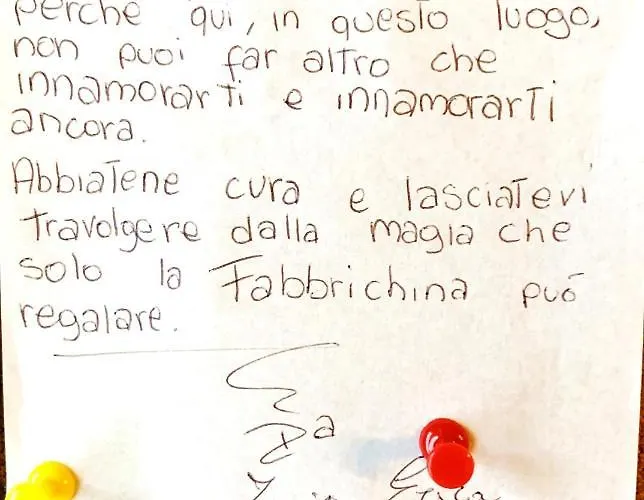 perché qui, in questo luogo,
non puoi far altro che
innamorarti e innamorarti
ancora.
Abbiatene cura e lasciatevi
travolgere dalla magia che
solo la Fabbrichina può
regalare.